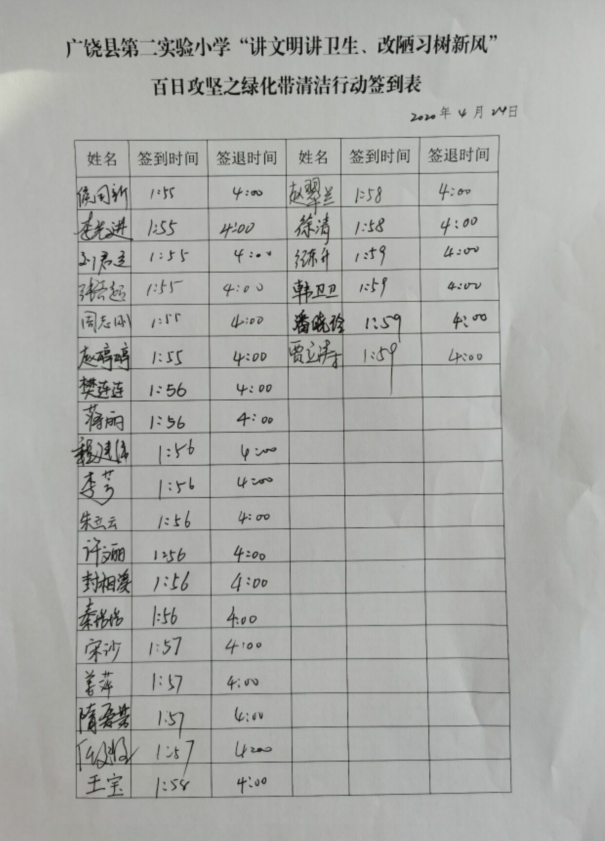 广饶县第二实验小学“讲文明讲卫生、改陋习树新风”
百日攻坚之绿化带清洁行动签到表
2020年4月24日
姓名 签到时间 签退时间 姓名 签到时间 签退时间
1:55 4:00 赵翠兰 1:58 4:00
李光进 1:55 4:00 徐清 1:58 4:00
1:55 4:00 1:59 4:00
1:55 4:00 韩卫卫 1:59 4:00
1:55 4:00 潘晓玲 1:59 4:00
赵婷婷 1:55 4:00 1:59 4:00
樊连连 1:56 4:00
蒋丽 1:56 4:00
1:56 4:00
李芳 1:56 4:00
朱立云 1:56 4:00
许文丽 1:56 4:00
封相凌 1:56 4:00
1:56 4:00
宋沙 1:57 4:00
姜萍 1:57 4:00
1:57 4:00
1:57 4:00
王宝 1:58 4:00